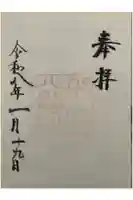 奉拝
令和八年一月十九日